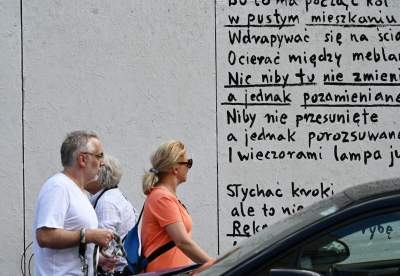 Bo co ma począć kot
w pustym mieszkaniu
Wdrapywać się na ścia
Ocierać między meblam
Nic niby tu nie zmieni
a jednak pozamieniane
Niby nie przesunięte
a jednak porozsuwane
I wieczorami lampa ju
Słychać kroki
ale to nie
Ręka rybę